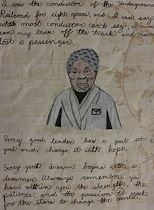 I was the conductor of the Underground
Railroad for eight years, and I can say
what most conductors can't say, I never
ran my train off the track and never
lost a passenger.
Every good leader has a goal at
goal and change it with hope.
Every great dream begins with a
dreamer. Always remember, you
have within you the strength, the
patience, and the passion to reach
for the stars to change the world.